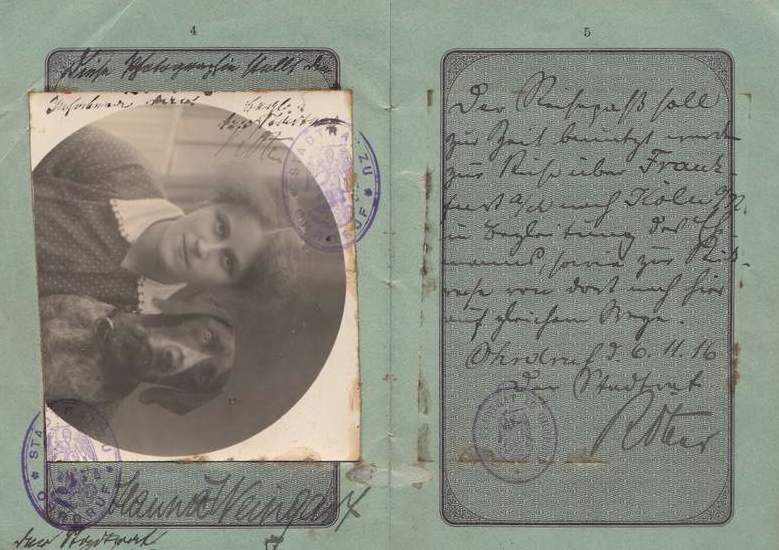 4
Diese Photographie stellt die
STADTRAT ZU OHRDRUF
Hanna Weingart
der Stadtrat
5
Der Reisepaß soll
zur Zeit benutzt werden
zur Reise über Frank-
furt a/M nach Köln a/R.
in Begleitung des Ehe-
manns, sowie zur Rück-
reise von dort nach hier
auf gleichem Wege.
Ohrdruf d. 6. 11. 16
Der Stadtrat